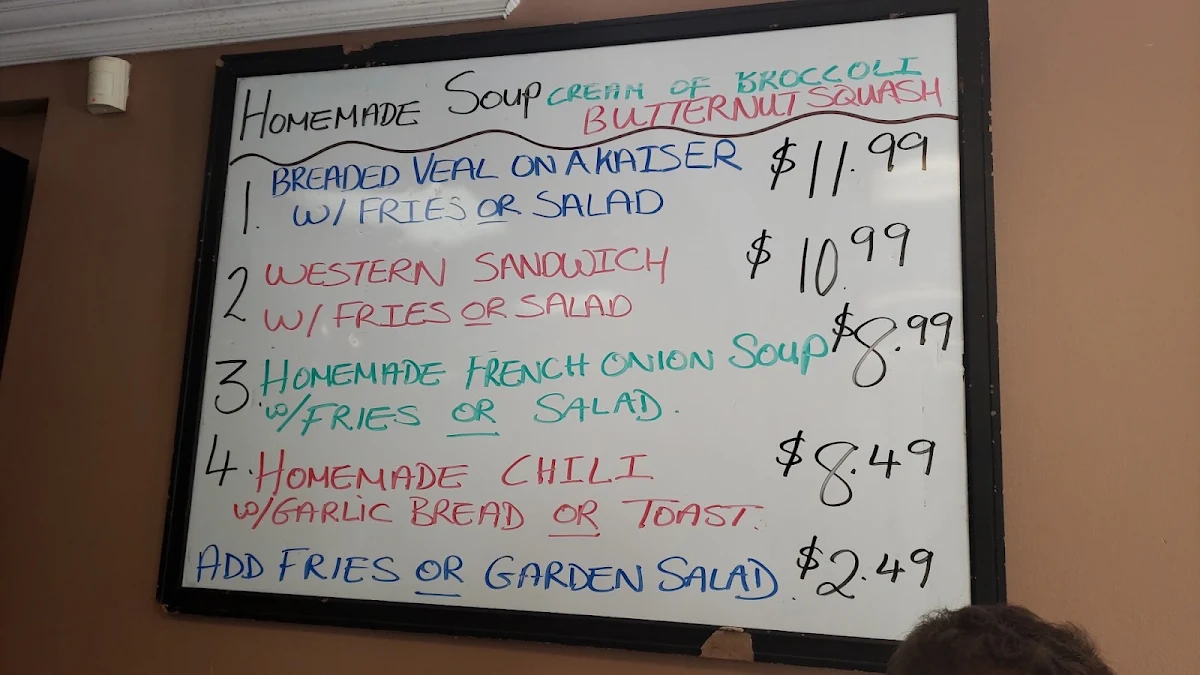 HOMEMADE SOUP CREAM OF BROCCOLI
BUTTERNUT SQUASH
1. BREADED VEAL ON A KAISER $11.99
W/ FRIES OR SALAD
2 WESTERN SANDWICH $10.99
W/ FRIES OR SALAD
3. HOMEMADE FRENCH ONION SOUP $8.99
W/FRIES OR SALAD.
4. HOMEMADE CHILI $8.49
W/GARLIC BREAD OR TOAST.
ADD FRIES OR GARDEN SALAD. $2.49